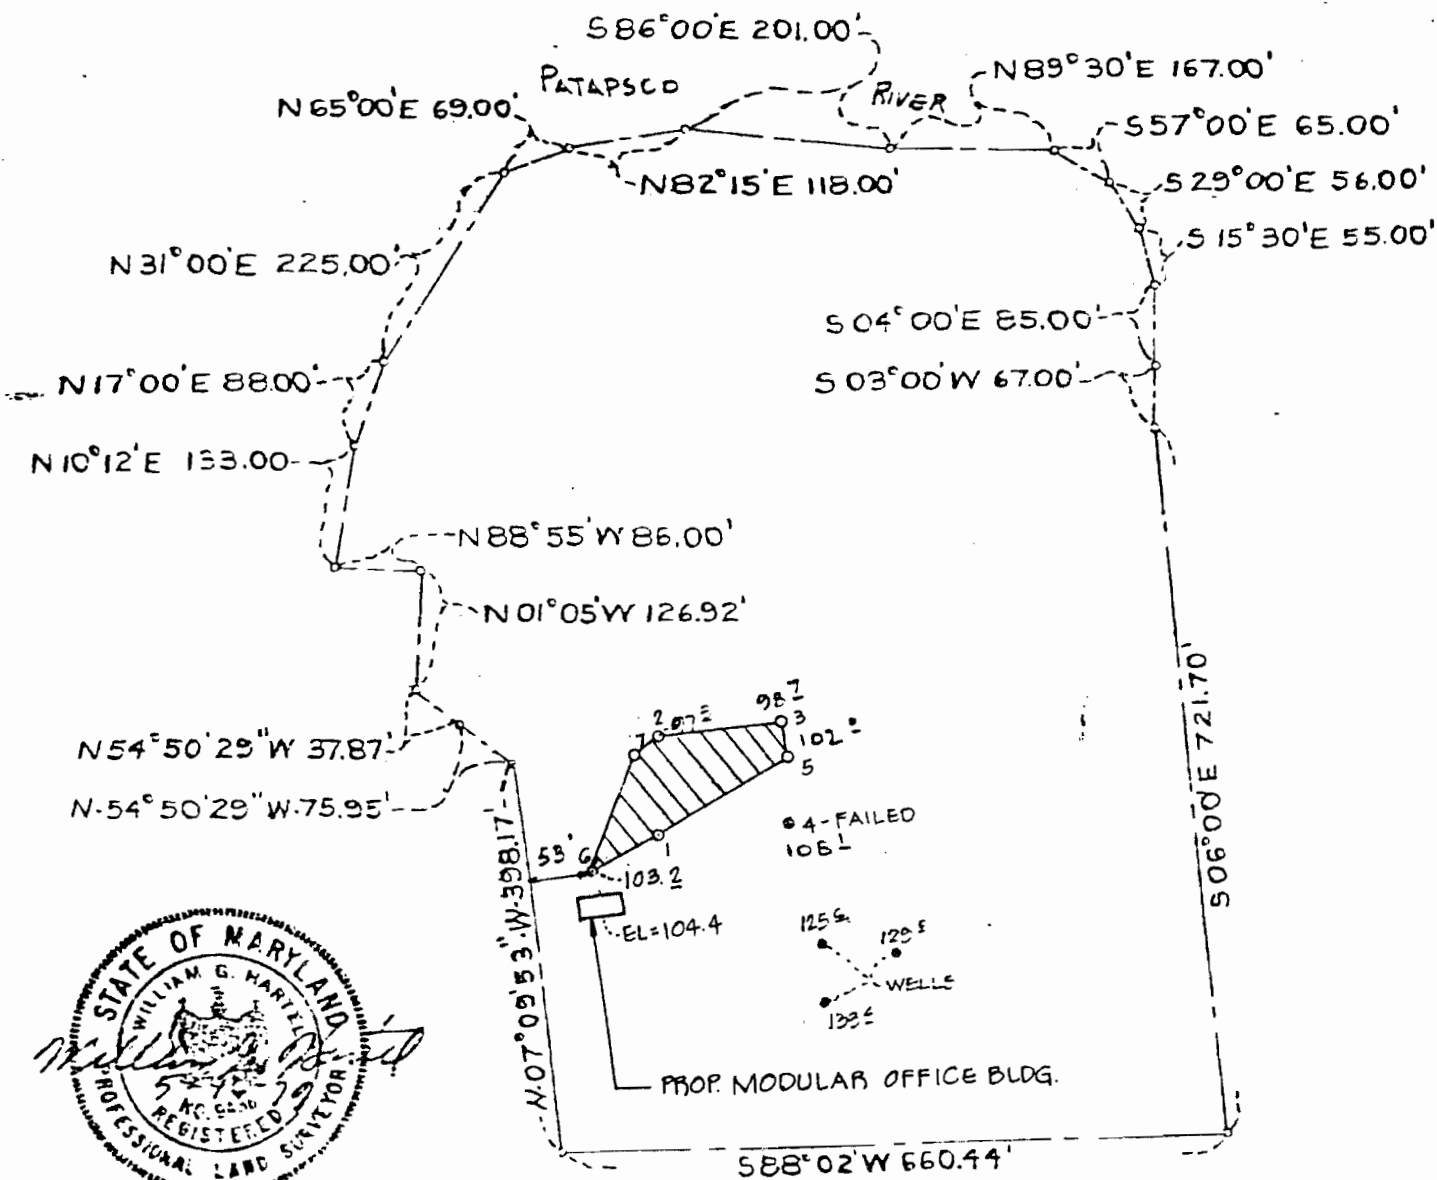 S86°00'E 201.00'
PATAPSCO
RIVER
N89°30'E 167.00'
N65°00'E 69.00'
S57°00'E 65.00'
N82°15'E 118.00'
S29°00'E 56.00'
S15°30'E 55.00'
N31°00'E 225.00'
S04°00'E 85.00'
N17°00'E 88.00'
S03°00'W 67.00'
N10°12'E 133.00
N88°55'W 86.00'
N01°05'W 126.92'
N54°50'29"W 37.87'
N.54°50'29"W.75.95'
2
98 7
3
102
5
7
4-FAILED
1
53'
6
103.2
EL=104.4
N.07°09'53".W.398.17'
S06°00'E 721.70'
125
129
WELLS
133
PROP. MODULAR OFFICE BLDG.
S88°02'W 660.44'
STATE OF MARYLAND
WILLIAM G. HARTEL
REGISTERED
PROFESSIONAL LAND SURVEYOR